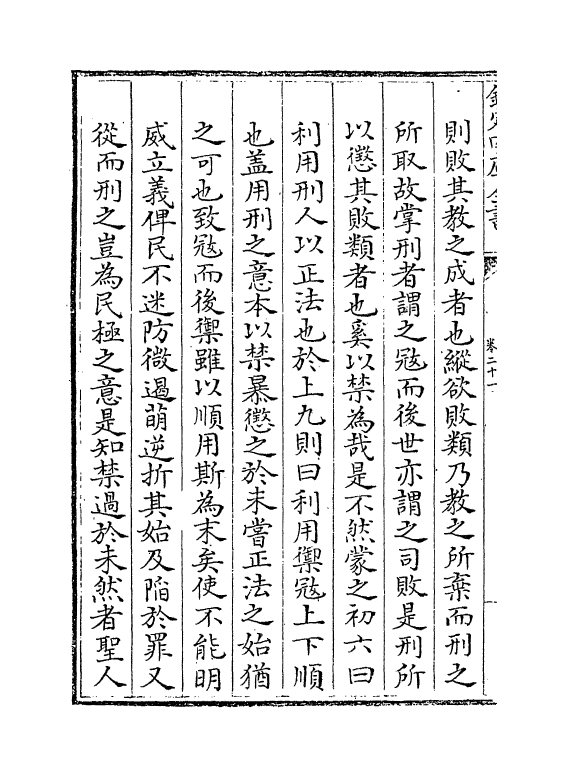 欽定四庫全書
卷二十一
則敗其教之成者也縱欲敗類乃教之所棄而刑之
所取故掌刑者謂之冦而後世亦謂之司敗是刑所
以懲其敗類者也奚以禁為哉是不然蒙之初六曰
利用刑人以正法也於上九則曰利用禦冦上下順
也盖用刑之意本以禁暴懲之於未嘗正法之始猶
之可也致冦而後禦雖以順用斯為末矣使不能明
威立義俾民不迷防微遏萌逆折其始及陷於罪又
從而刑之豈為民極之意是知禁過於未然者聖人